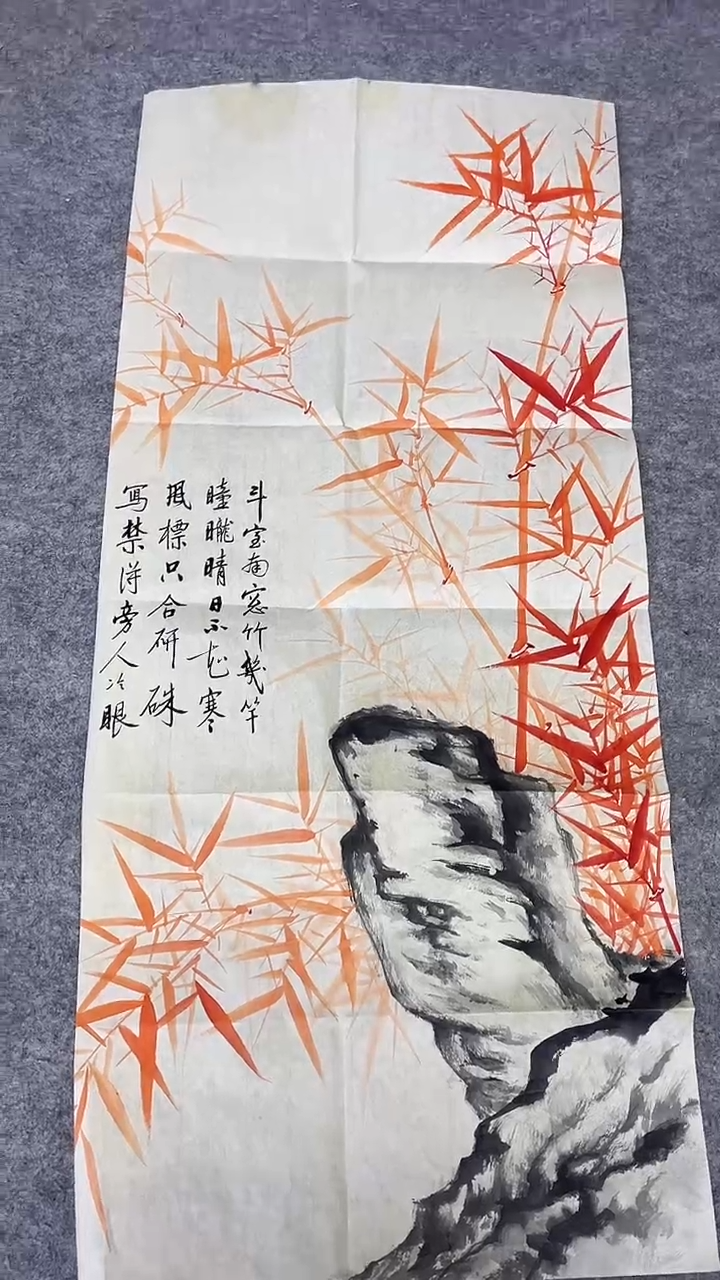 斗室南窓竹幾竿
曈曨晴日不知寒
抵標只合研硃
写禁得旁人冷眼